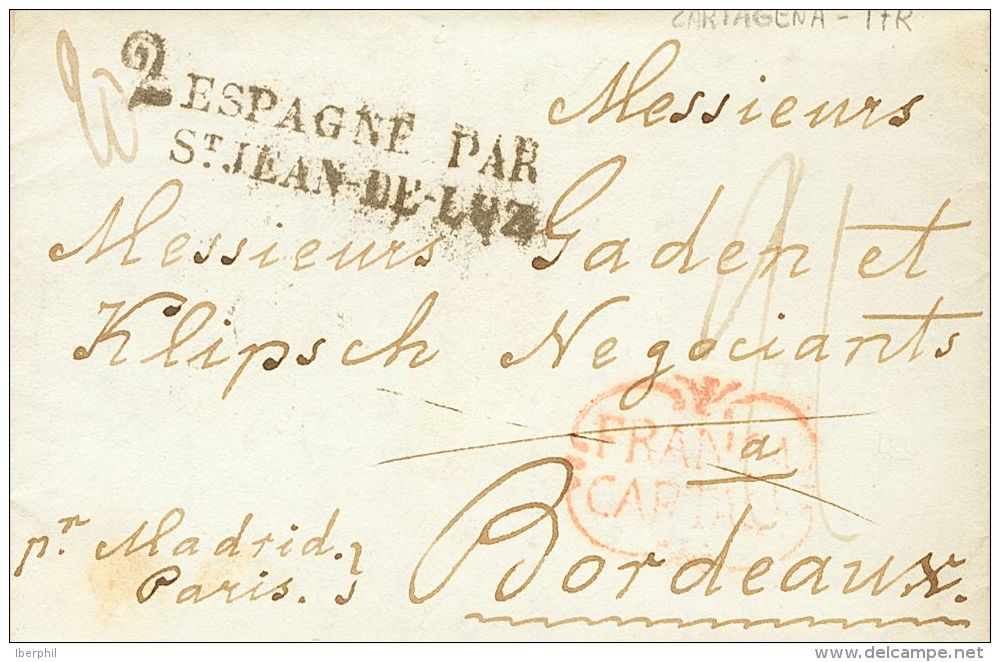 CARTAGENA - 17R
Messieurs
2 ESPAGNE PAR
ST. JEAN-DE-LUZ
Messieurs Gaden et
Klipsch Negociants
a
FRANCA
CARTAG
Bordeaux.
pr. Madrid.
Paris.
Iberphil
delcampe.net